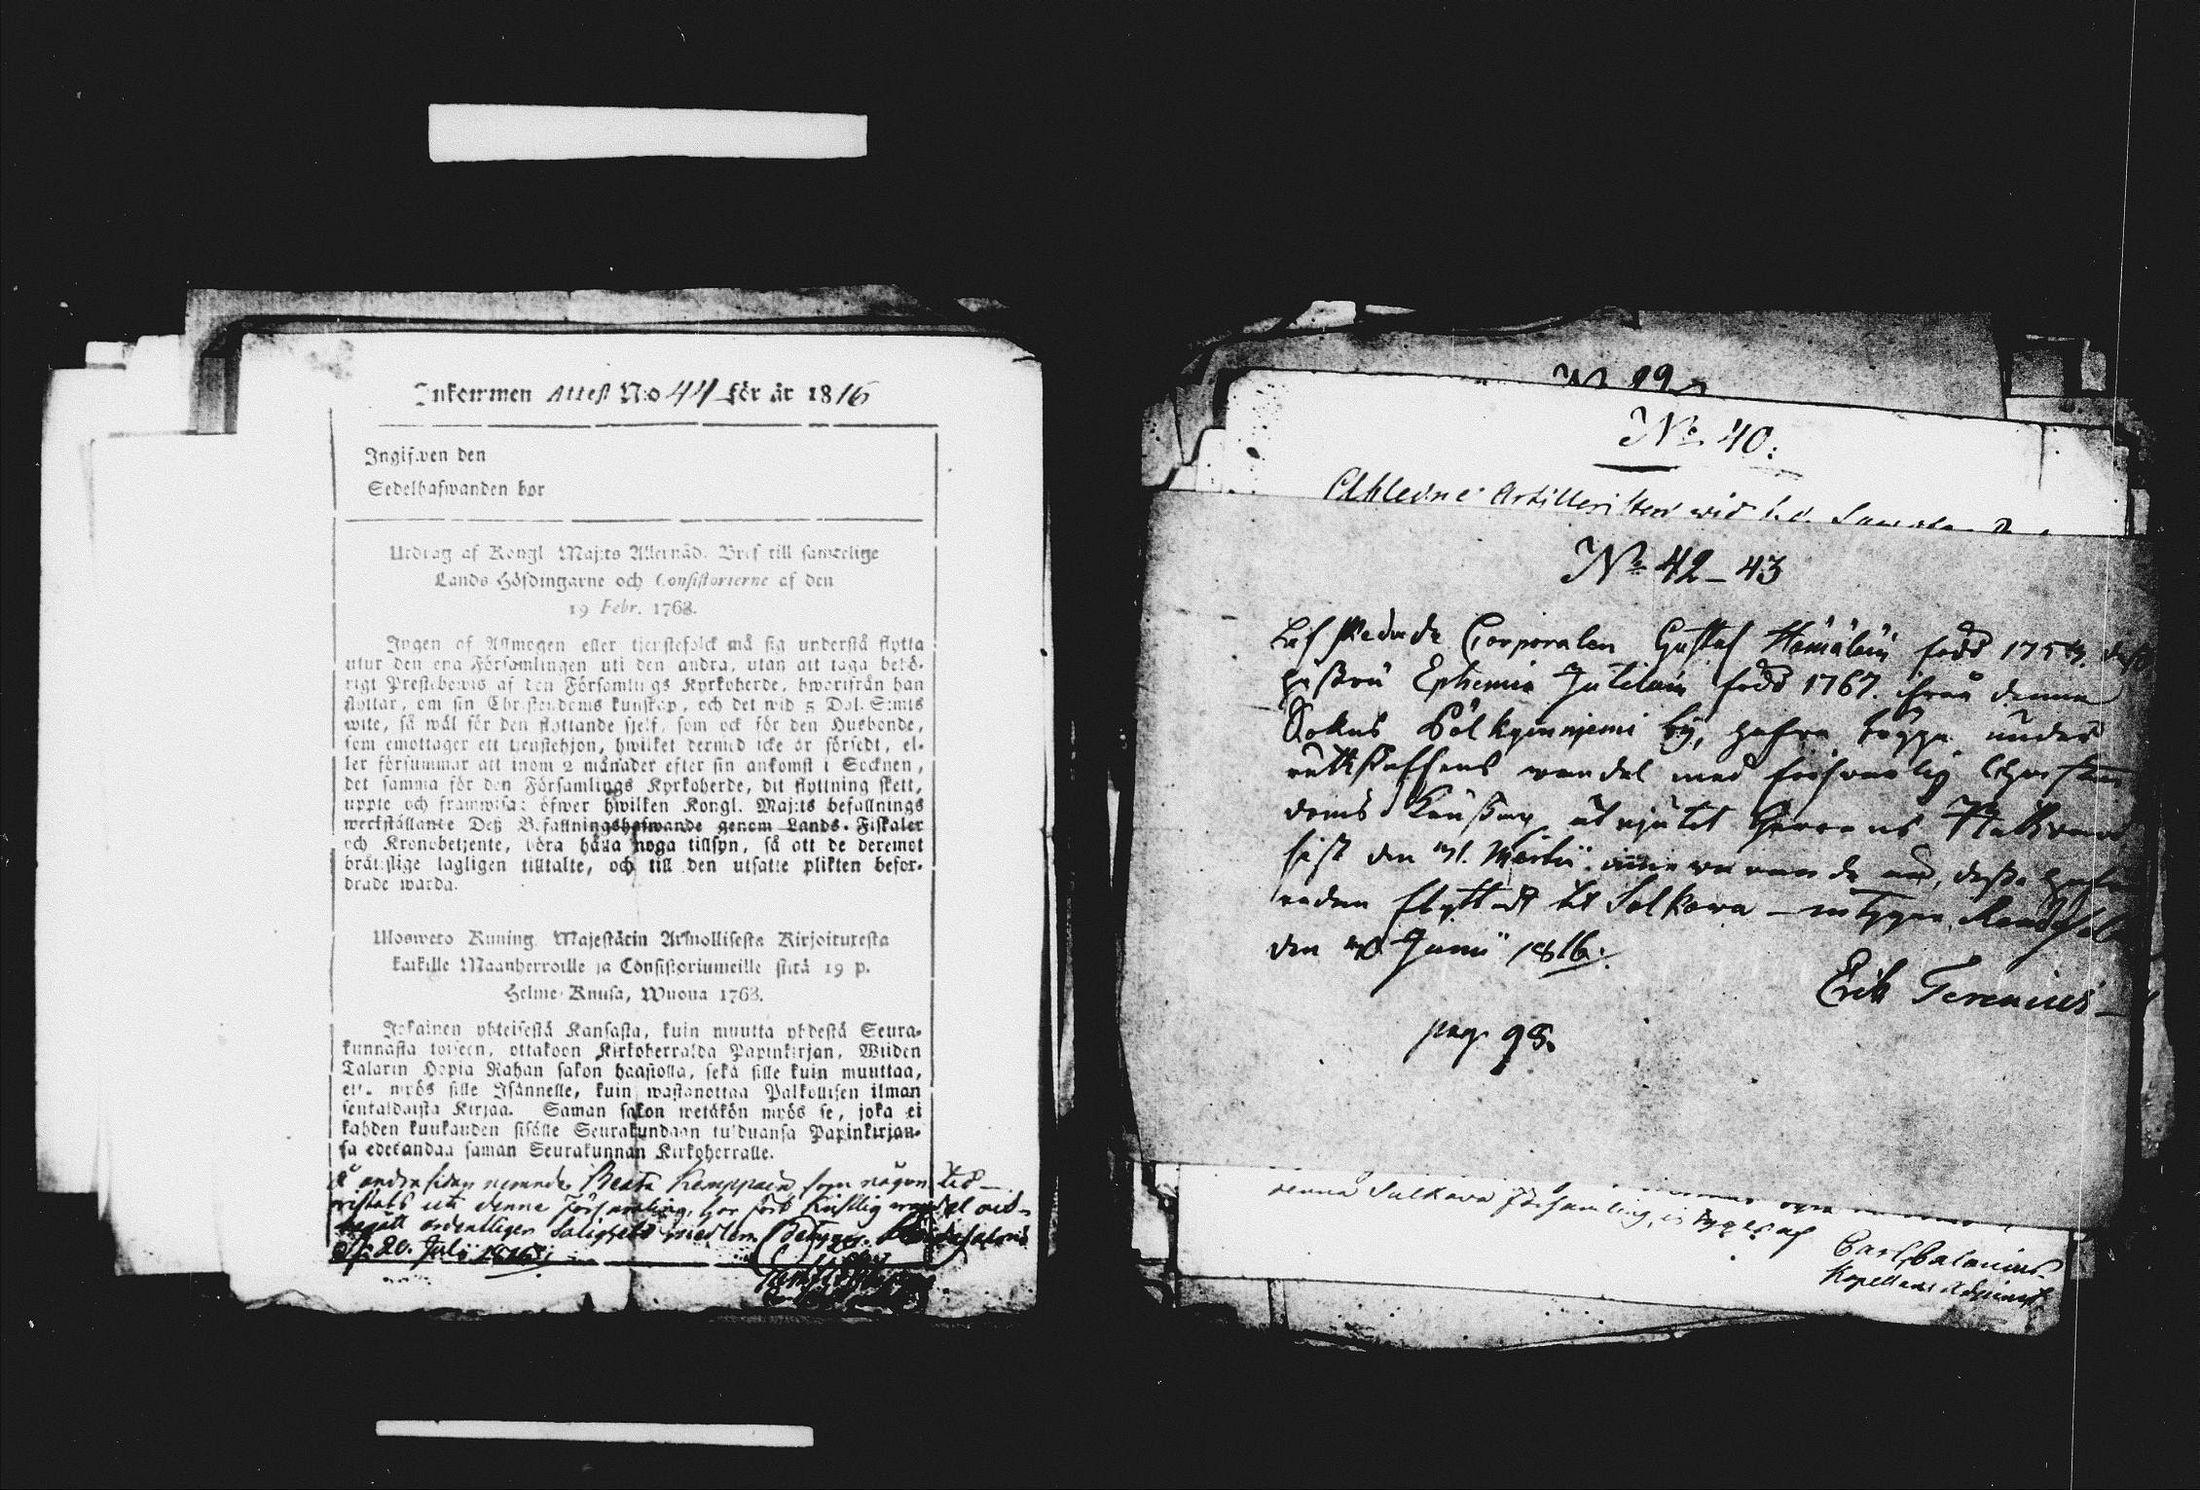 Inkommen Attest N:o 44 för år 1816
Ingifwen den
Sedelhafwanden bor
Utdrag af Kongl Maj:ts Allernåd. Bref till samtelige
Lands Höfdingarne och Consistorierne af den
19 Febr. 1768.
Ingen af Allmogen eller tjenstefolck må sig understå flytta
utur den ena Församlingen uti den andra, utan att taga behö-
rigt Prestebewis af den Församlings Kyrkoherde, hworifrån han
flyttar, om sin Christendoms kunskap, och det wid 5 Dal. S:mts
wite, så wäl för den flyttande sjelf, som ock för den Husbonde,
som emottager ett tjenstehjon, hwilket dermed icke är försedt, el-
ler försummar att inom 2 månader efter sin ankomst i Socknen,
det samma för den Församlings Kyrkoherde, dit flyttning skett,
uppte och framwisa: öfwer hwilken Kongl. Maj:ts befallnings
werkställande Deß Befallningshafwande genom Lands-Fiskaler
och Kronobetjente, böra hålla noga tillsyn, så att de deremot
brätslige lagligen tilltalte, och till den utsatte plikten befor-
drade warda.
Ulosweto Kuning. Majestätin Armollisesta Kirjoituxesta
kaikille Maanherroille ja Consistoriumeille siitä 19 p.
Helme-Kuusa, Wuonna 1768.
Jokainen yhteisestä Kansasta, kuin muutta yhdestä Seura-
kunnasta toiseen, ottakoon Kirkoherralda Papinkirjan, Wiiden
Talarin Hopia Rahan sakon haastolla, sekä sille kuin muuttaa,
että myös sille Isännelle, kuin wastanottaa Palkollisen ilman
senkaldaista Kirjaa. Saman sakon wetäkön myös se, joka ei
kahden kuukauden sisälle Seurakundaan tulduansa Papinkirjan-
sa edesandaa saman Seurakunnan Kirkoherralle.
å andra sidan nemnde Beata Kemppain som någon tid
wistats uti denne Församling, har fört Christlig wandel och
begått ordentligen Salighets medlem betygar
d. 20. Juli 1816
N:o 40:
Artilleristen wid
N:o 42-43
Afskedade Corporalen Gustaf Hämäläin född 1754. deß
hustru Ephemia Jutilain född 1767. ifrån denna
Sokns Pölkynniemi by, hafva bägge under
rättskaffens wandel med försvarlig Christen
doms kunskap åtnjutit Herrans Nattvard
sist den
flyttadt til Sulkava
den Junii 1816.
Erik Terenius
pag. 98.
denna Sulkava Församling, betygas af
Carl Calonius
Kapellans Adjunct